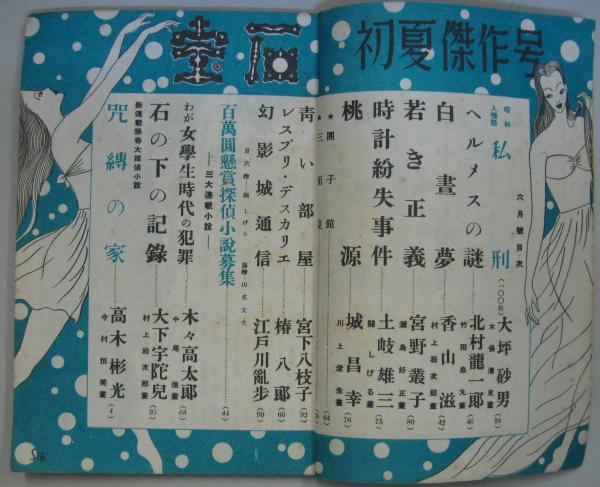 初夏傑作号
宝石
六月號目次
昭和人情話 私刑(一〇〇枚) 大坪砂男(18)
木俣清史畫
ヘルメスの謎 北村龍一郞(46)
竹田忠夫畫
白晝夢 香山滋(42)
村上松次郞畫
若き正義 宮野叢子(80)
瀬島好正畫
時計紛失事件 土岐雄三(75)
關しげる畫
桃源 城昌幸(76)
川上澄生畫
★圈子館(64)
靑い部屋 宮下八枝子(92)
レスプリ・デスカリエ 椿八郞(66)
幻影城通信 江戸川亂步(90)
百萬圓懸賞探偵小說募集(44)
―三大連載小說―
わが女學生時代の犯罪 木々高太郞(68)
中尾進畫
石の下の記錄 大下宇陀兒(95)
村上松次郞畫
新連載掉尾大探偵小說
咒縛の家 高木彬光(4)
今村恒美畫